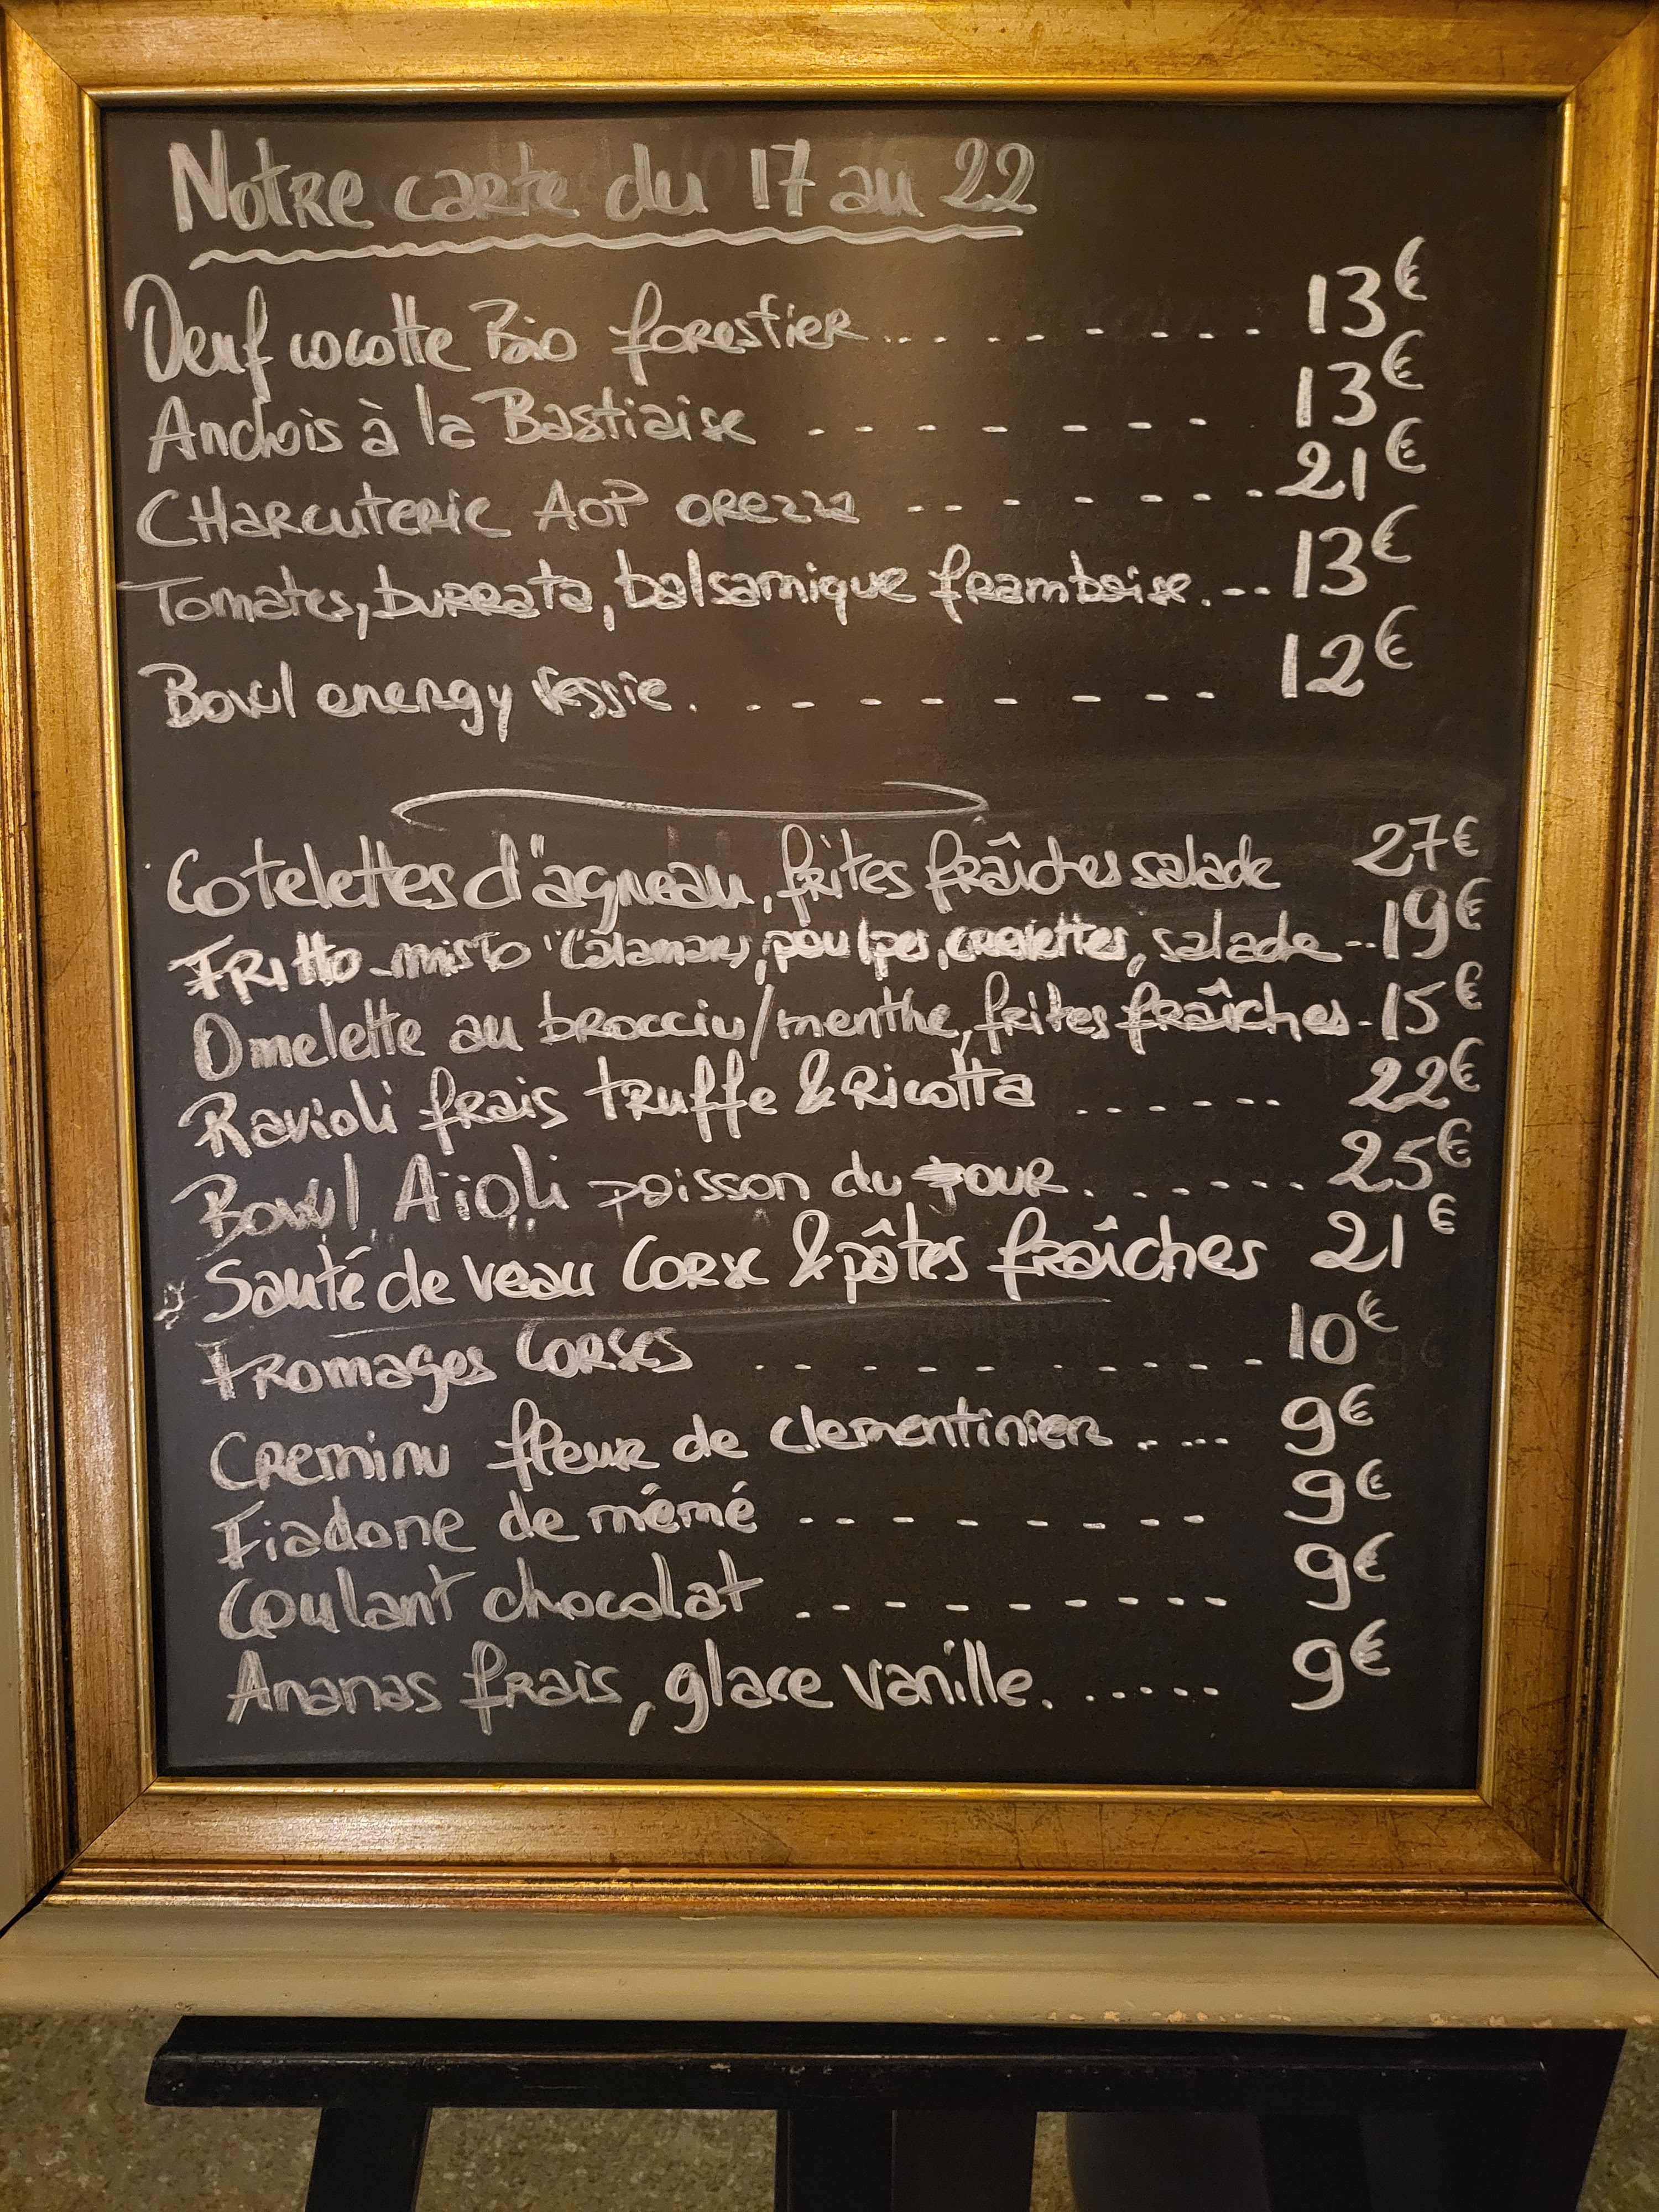 Notre carte du 17 au 22
Oeuf cocotte Bio forestier ... - - - - - - 13€
Anchois à la Bastiaise - - - - - - - 13€
Charcuterie AOP orezza - - - - - - - 21€
Tomates, burrata, balsamique framboise . - - 13€
Bowl energy . - - - - - - - 12€
Cotelettes d'agneau, frites fraîches salade 27€
Fritto-misto "Calamars, poulpes, crevettes, salade -- 19€
Omelette au brocciu/menthe, frites fraîches - 15€
Ravioli frais truffe & Ricotta ...... 22€
Bowl Aïoli poisson du jour ....... 25€
Sauté de veau Corse & pâtes fraîches 21€
Fromages Corses - - - - - - - - 10€
Creminu fleur de clementinier .... 9€
Fiadone de mémé - - - - - - - - 9€
Coulant chocolat - - - - - - - - 9€
Ananas frais, glace vanille. ..... 9€